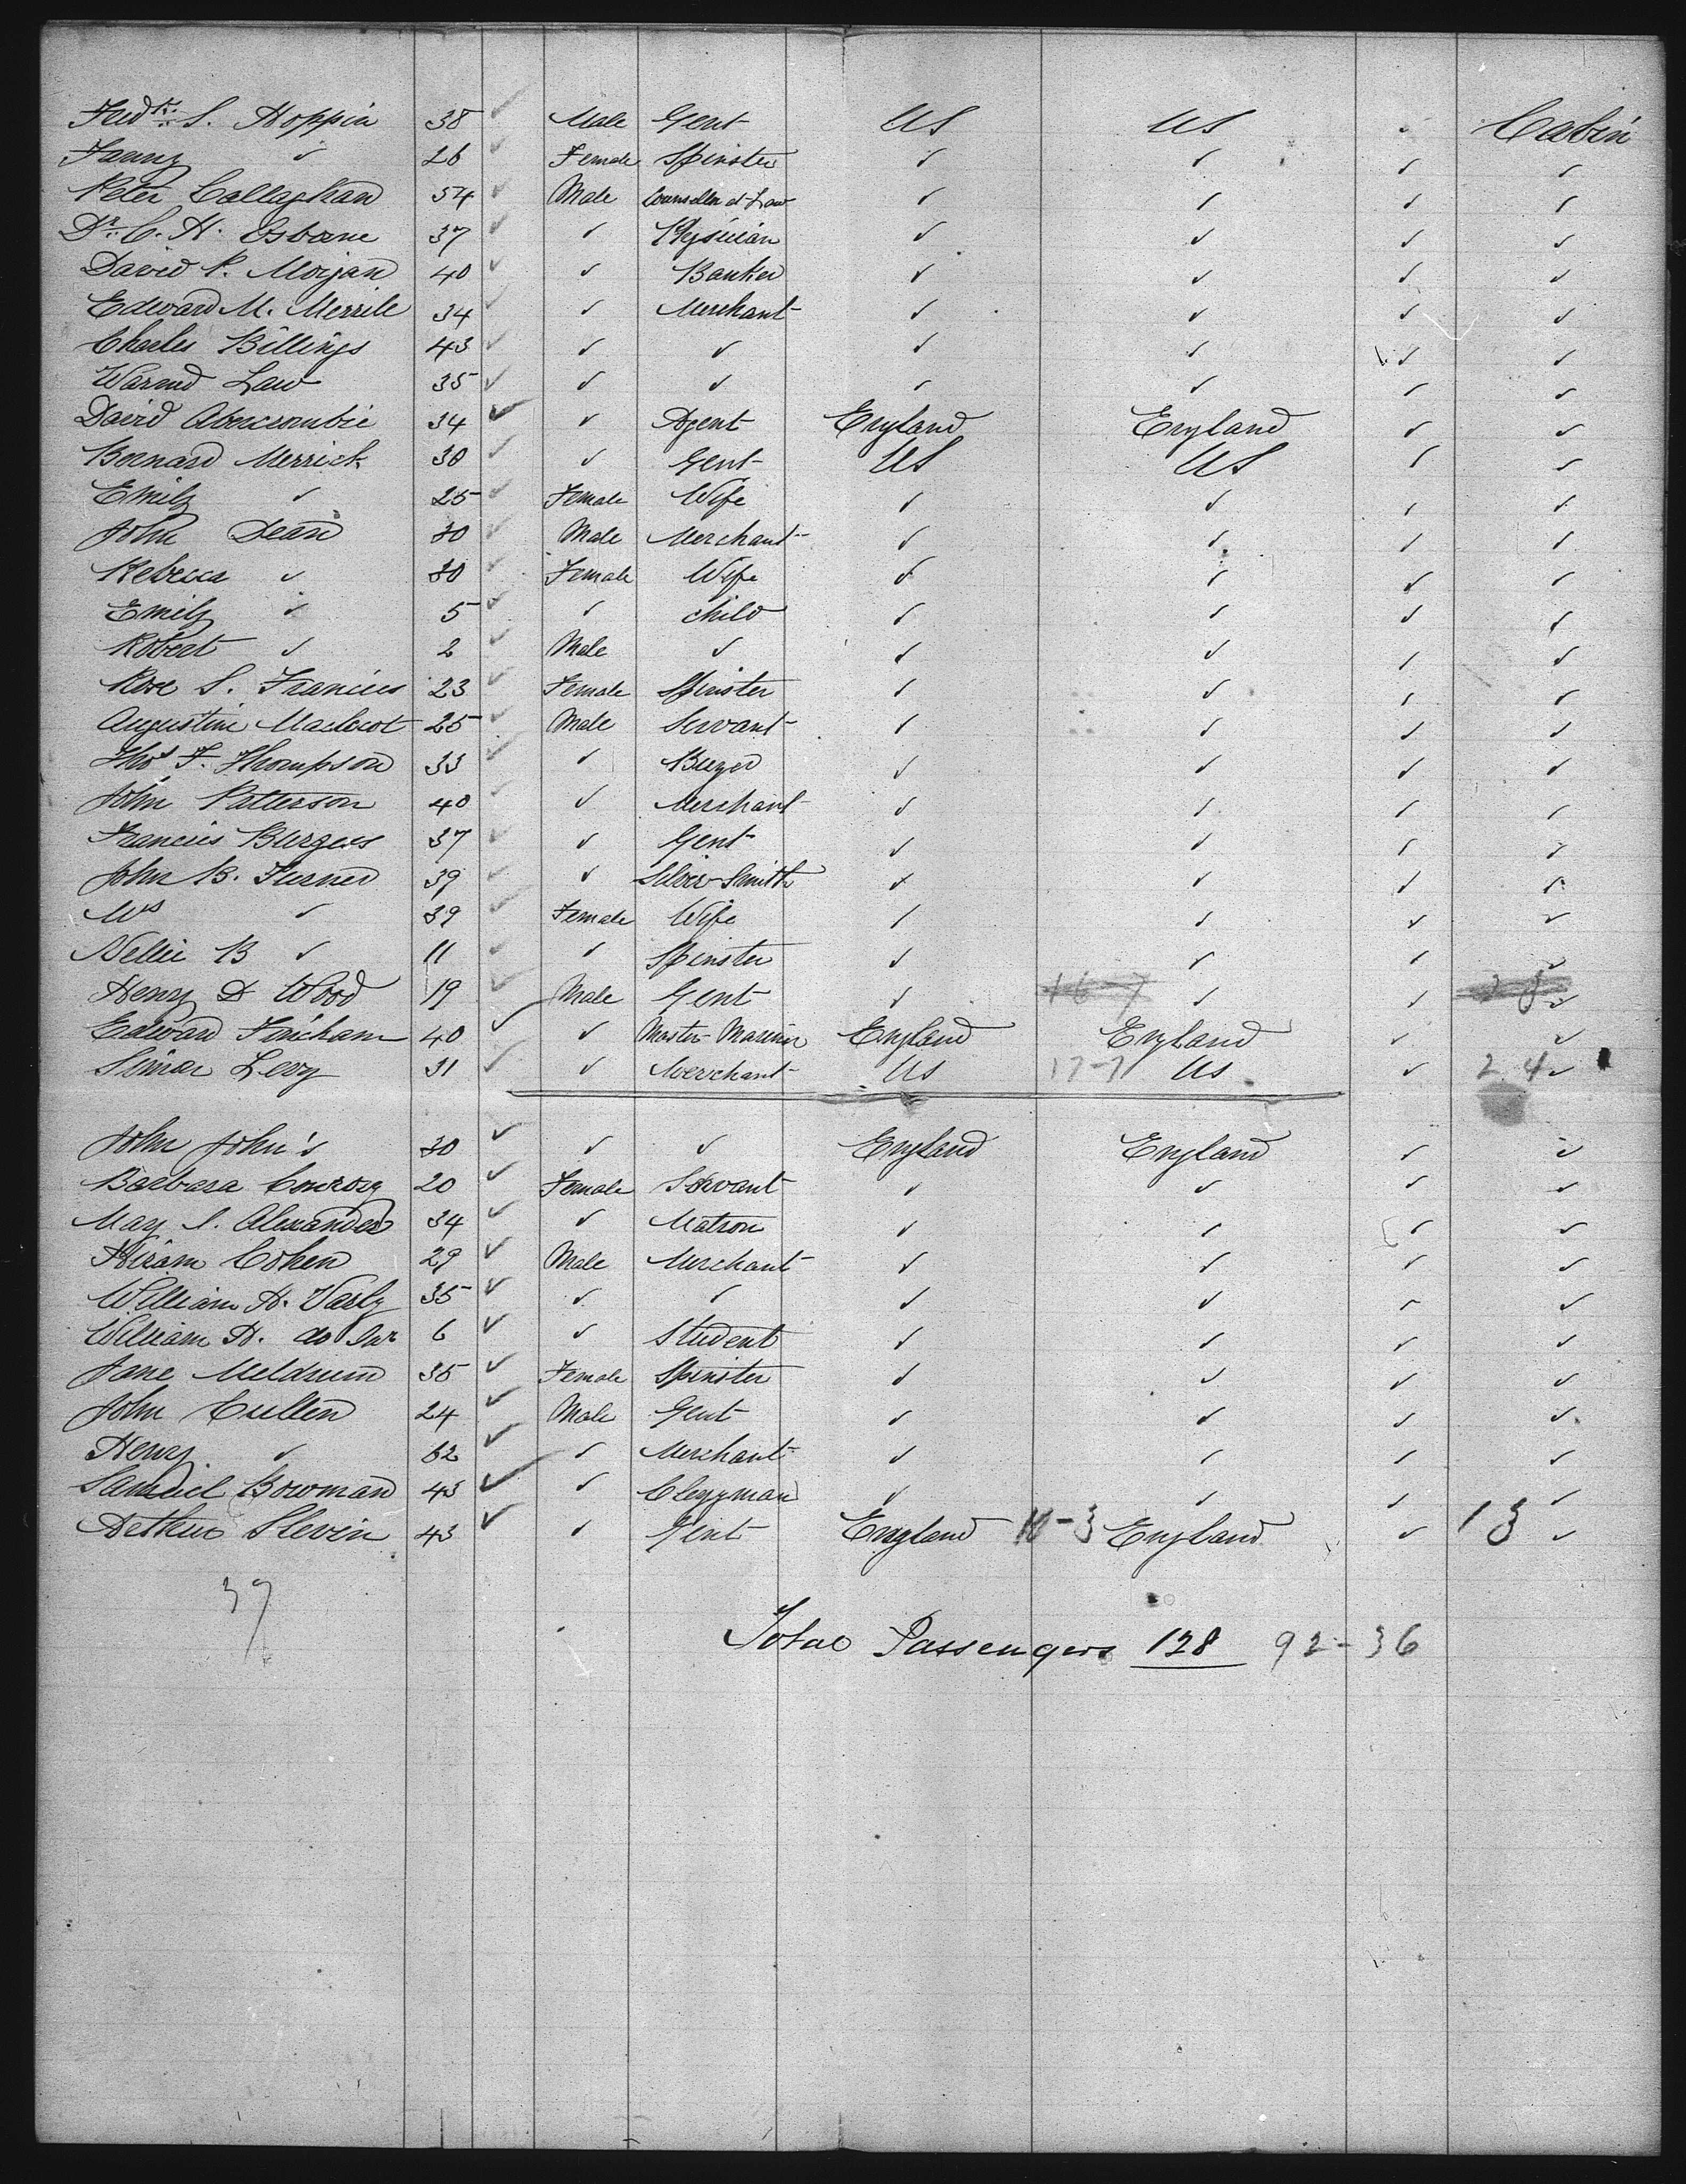 Fredk. S. Hoppin 38 ✓ Male Gent US US ✓ Cabin
Fanny ✓ 26 ✓ Female Spinster ✓ ✓ ✓ ✓
Peter Callaghan 54 ✓ Male Counsellor at Law ✓ ✓ ✓ ✓
Dr. C. H. Osborne 37 ✓ ✓ Physician ✓ ✓ ✓ ✓
David P. Morgan 40 ✓ ✓ Banker ✓ ✓ ✓ ✓
Edward M. Merrile 34 ✓ ✓ Merchant ✓ ✓ ✓ ✓
Charles Billings 43 ✓ ✓ ✓ ✓ ✓ ✓ ✓
Law 35 ✓ ✓ ✓ ✓ ✓ ✓ ✓
David Abercrombie 34 ✓ ✓ Agent England England ✓ ✓
Bernard Merrick 30 ✓ ✓ Gent US US ✓ ✓
Emily ✓ 25 ✓ Female Wife ✓ ✓ ✓ ✓
John Dean 30 ✓ Male Merchant ✓ ✓ ✓ ✓
Rebecca ✓ 30 ✓ Female Wife ✓ ✓ ✓ ✓
Emily ✓ 5 ✓ ✓ child ✓ ✓ ✓ ✓
Robert ✓ 2 ✓ Male ✓ ✓ ✓ ✓ ✓
Rose S. Francies 23 ✓ Female Spinster ✓ ✓ ✓ ✓
Augustine 25 ✓ Male Servant ✓ ✓ ✓ ✓
Thos F. Thompson 33 ✓ ✓ Buyer ✓ ✓ ✓ ✓
John Patterson 40 ✓ ✓ Merchant ✓ ✓ ✓ ✓
Francies Burgess 37 ✓ ✓ Gent ✓ ✓ ✓ ✓
John B. Turner 39 ✓ ✓ Silver Smith ✓ ✓ ✓ ✓
Ms ✓ 39 ✓ Female Wife ✓ ✓ ✓ ✓
Nellie B ✓ 11 ✓ ✓ Spinster ✓ ✓ ✓ ✓
Henry D Wood 19 ✓ Male Gent ✓ 16-7 ✓ ✓ ✓
Edward Faircham 40 ✓ ✓ Master Mariner England England ✓ ✓
Simon Levy 31 ✓ ✓ Merchant US 17-7 US ✓ 24 ✓
John John's 30 ✓ ✓ ✓ England England ✓ ✓
Barbara Conroy 20 ✓ Female Servant ✓ ✓ ✓ ✓
May S. Alexander 34 ✓ ✓ Matron ✓ ✓ ✓ ✓
Hiram Cohen 29 ✓ Male Merchant ✓ ✓ ✓ ✓
William H. Varly 35 ✓ ✓ ✓ ✓ ✓ ✓ ✓
William H. do Jnr 6 ✓ ✓ Student ✓ ✓ ✓ ✓
Jane Meldrum 35 ✓ Female Spinster ✓ ✓ ✓ ✓
John Cullen 24 ✓ Male Gent ✓ ✓ ✓ ✓
Henry ✓ 62 ✓ ✓ Merchant ✓ ✓ ✓ ✓
Samuel Bowman 43 ✓ ✓ Clergyman ✓ ✓ ✓ ✓
Arthur Slevin 43 ✓ ✓ Gent England 11-3 England ✓ 13 ✓
37
Total Passengers 128 92-36